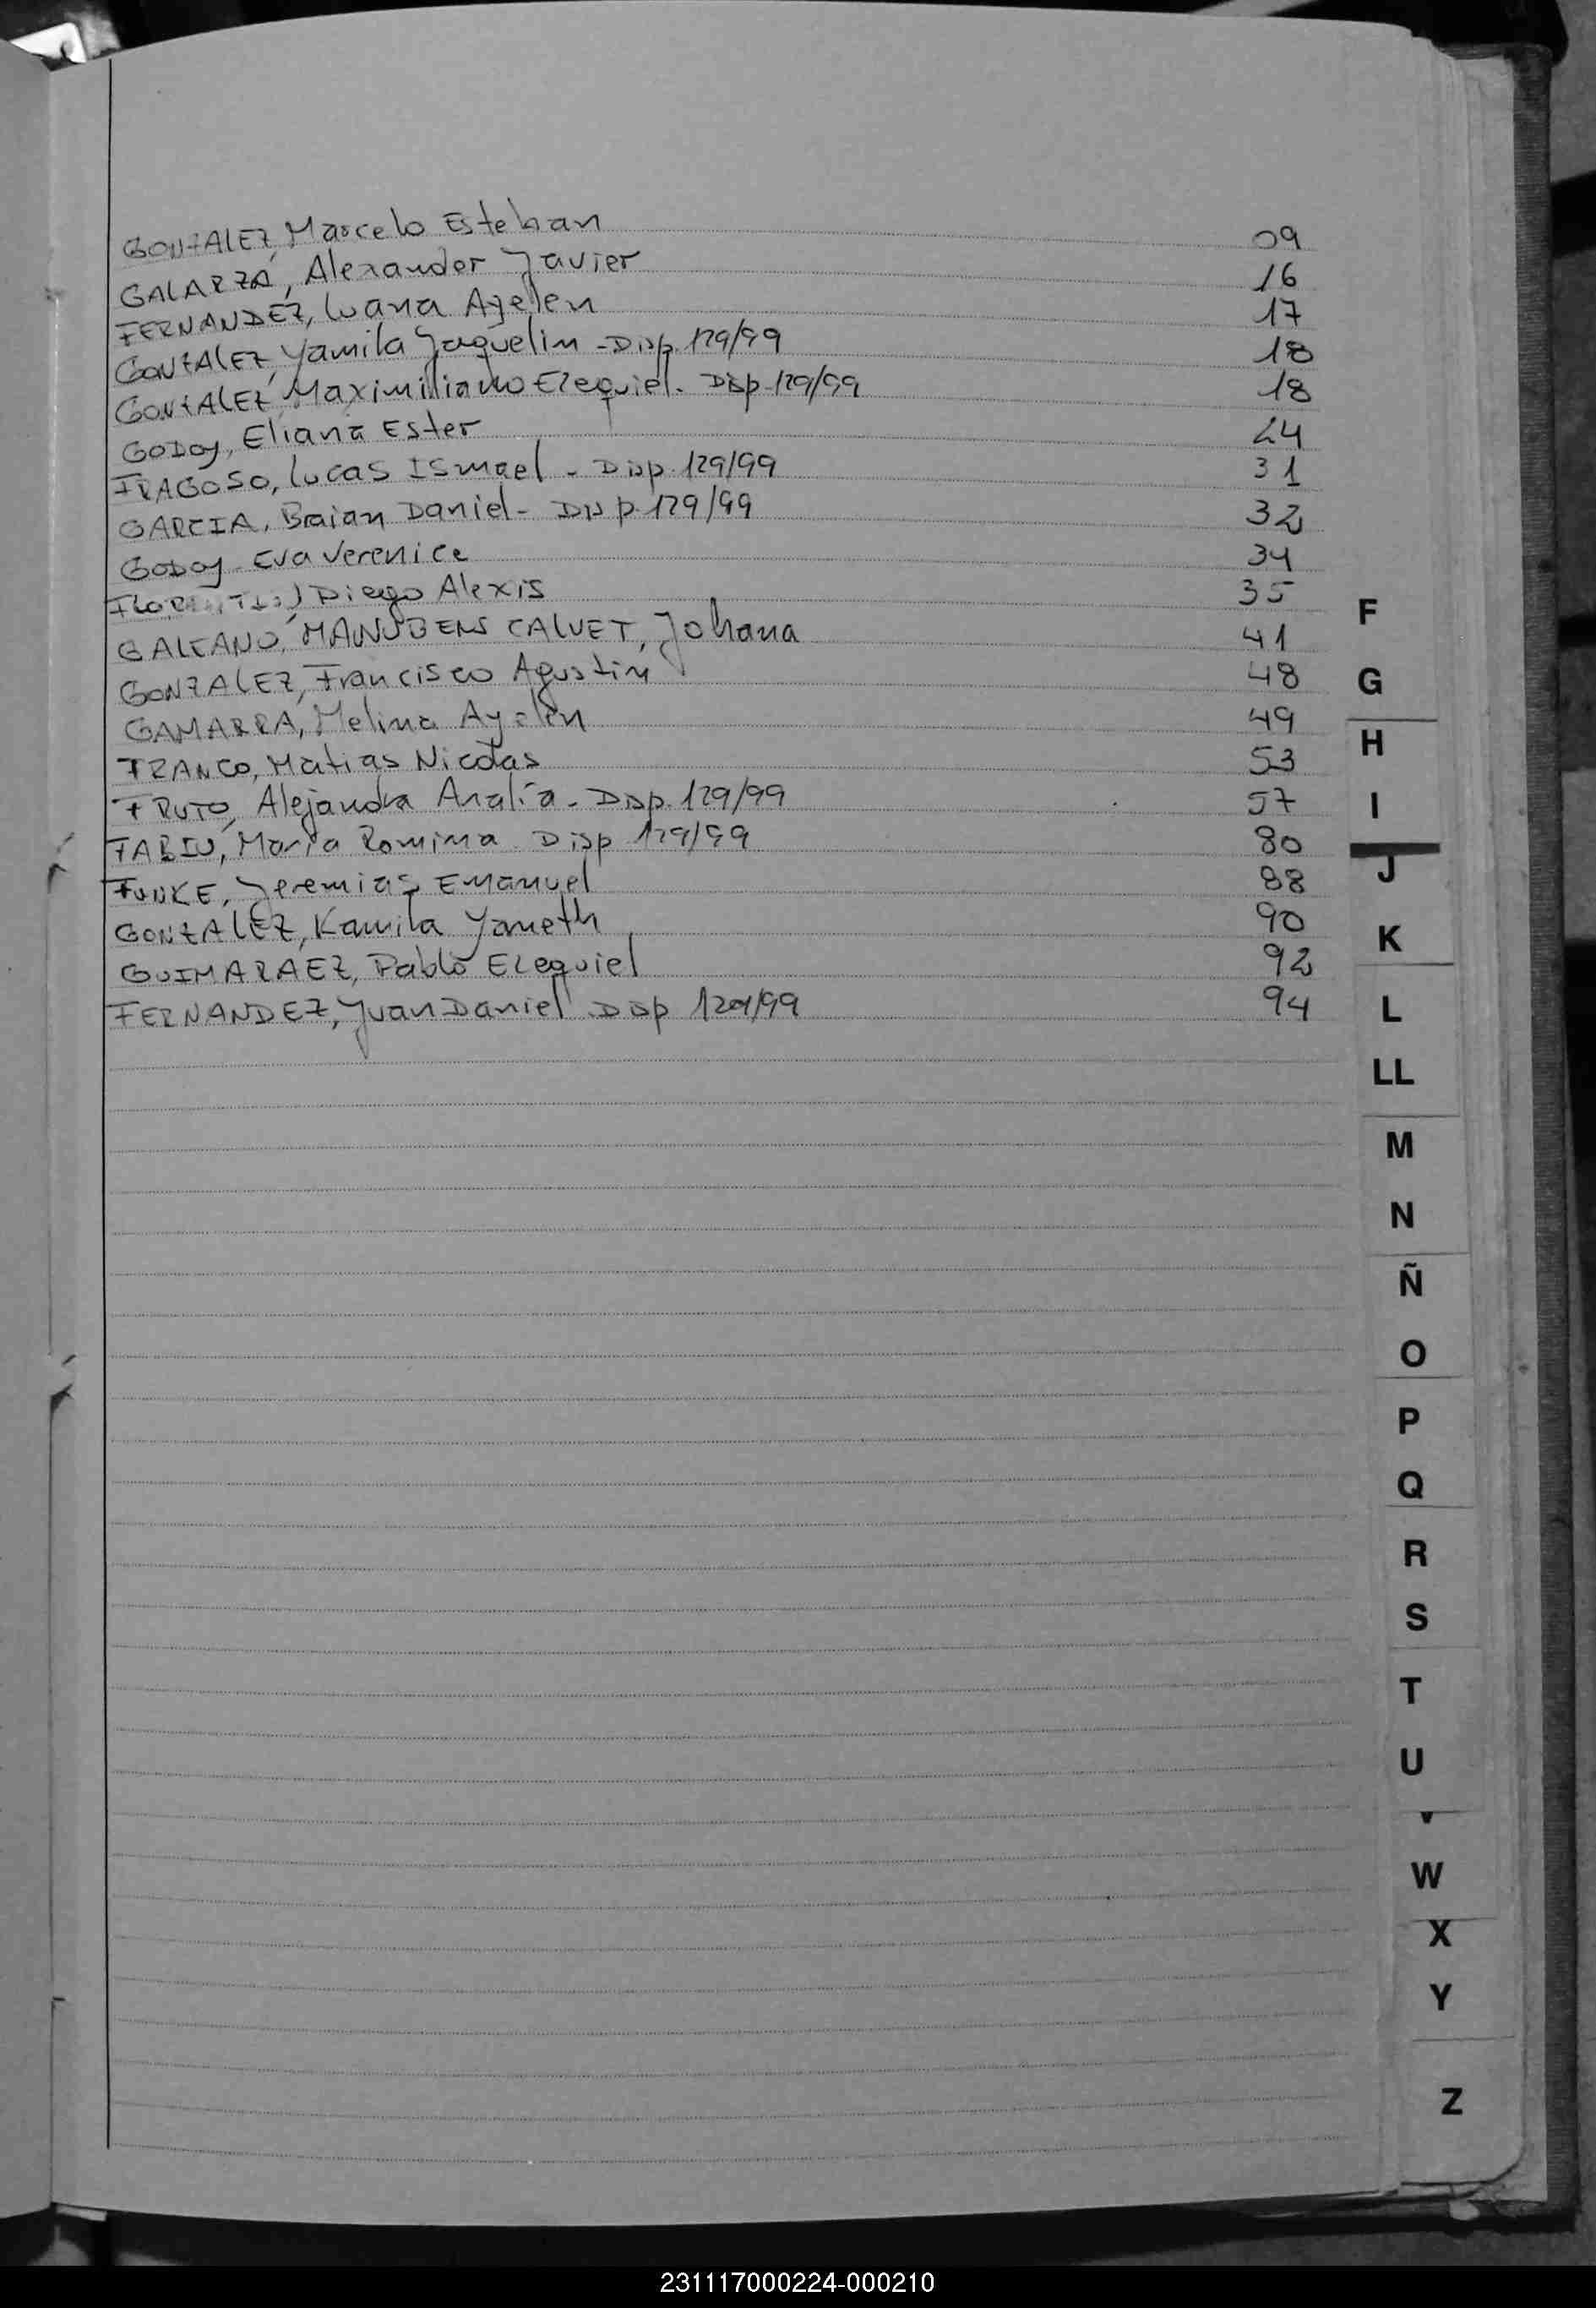 GONZALEZ, Marcelo Esteban 09
GALARZA, Alexander Javier 16
FERNANDEZ, Luana Ayelen 17
GONZALEZ, Yamila Jaquelin - Disp. 129/99 18
GONZALEZ, Maximiliano Ezequiel. Disp. 129/99 18
GODOY, Eliana Ester 24
FRAGOSO, Lucas Ismael - Disp. 129/99 31
GARCIA, Braian Daniel - Disp. 129/99 32
GODOY Eva Verenice 34
Diego Alexis 35
GALEANO, MANUBENS CALVET, Johana 41
GONZALEZ, Francisco Agustin 48
GAMARRA, Melina Ayelen 49
FRANCO, Matias Nicolas 53
FRUTO, Alejandra Analía - Disp. 129/99 57
FABIO, Maria Romina Disp 129/99 80
FUNKE, Jeremias Emanuel 88
GONZALEZ, Kamila Yaneth 90
GUIMARAEZ, Pablo Ezequiel 92
FERNANDEZ, Juan Daniel Disp 129/99 94
F
G
H
I
J
K
L
LL
M
N
Ñ
O
P
Q
R
S
T
U
V
W
X
Y
Z
231117000224-000210